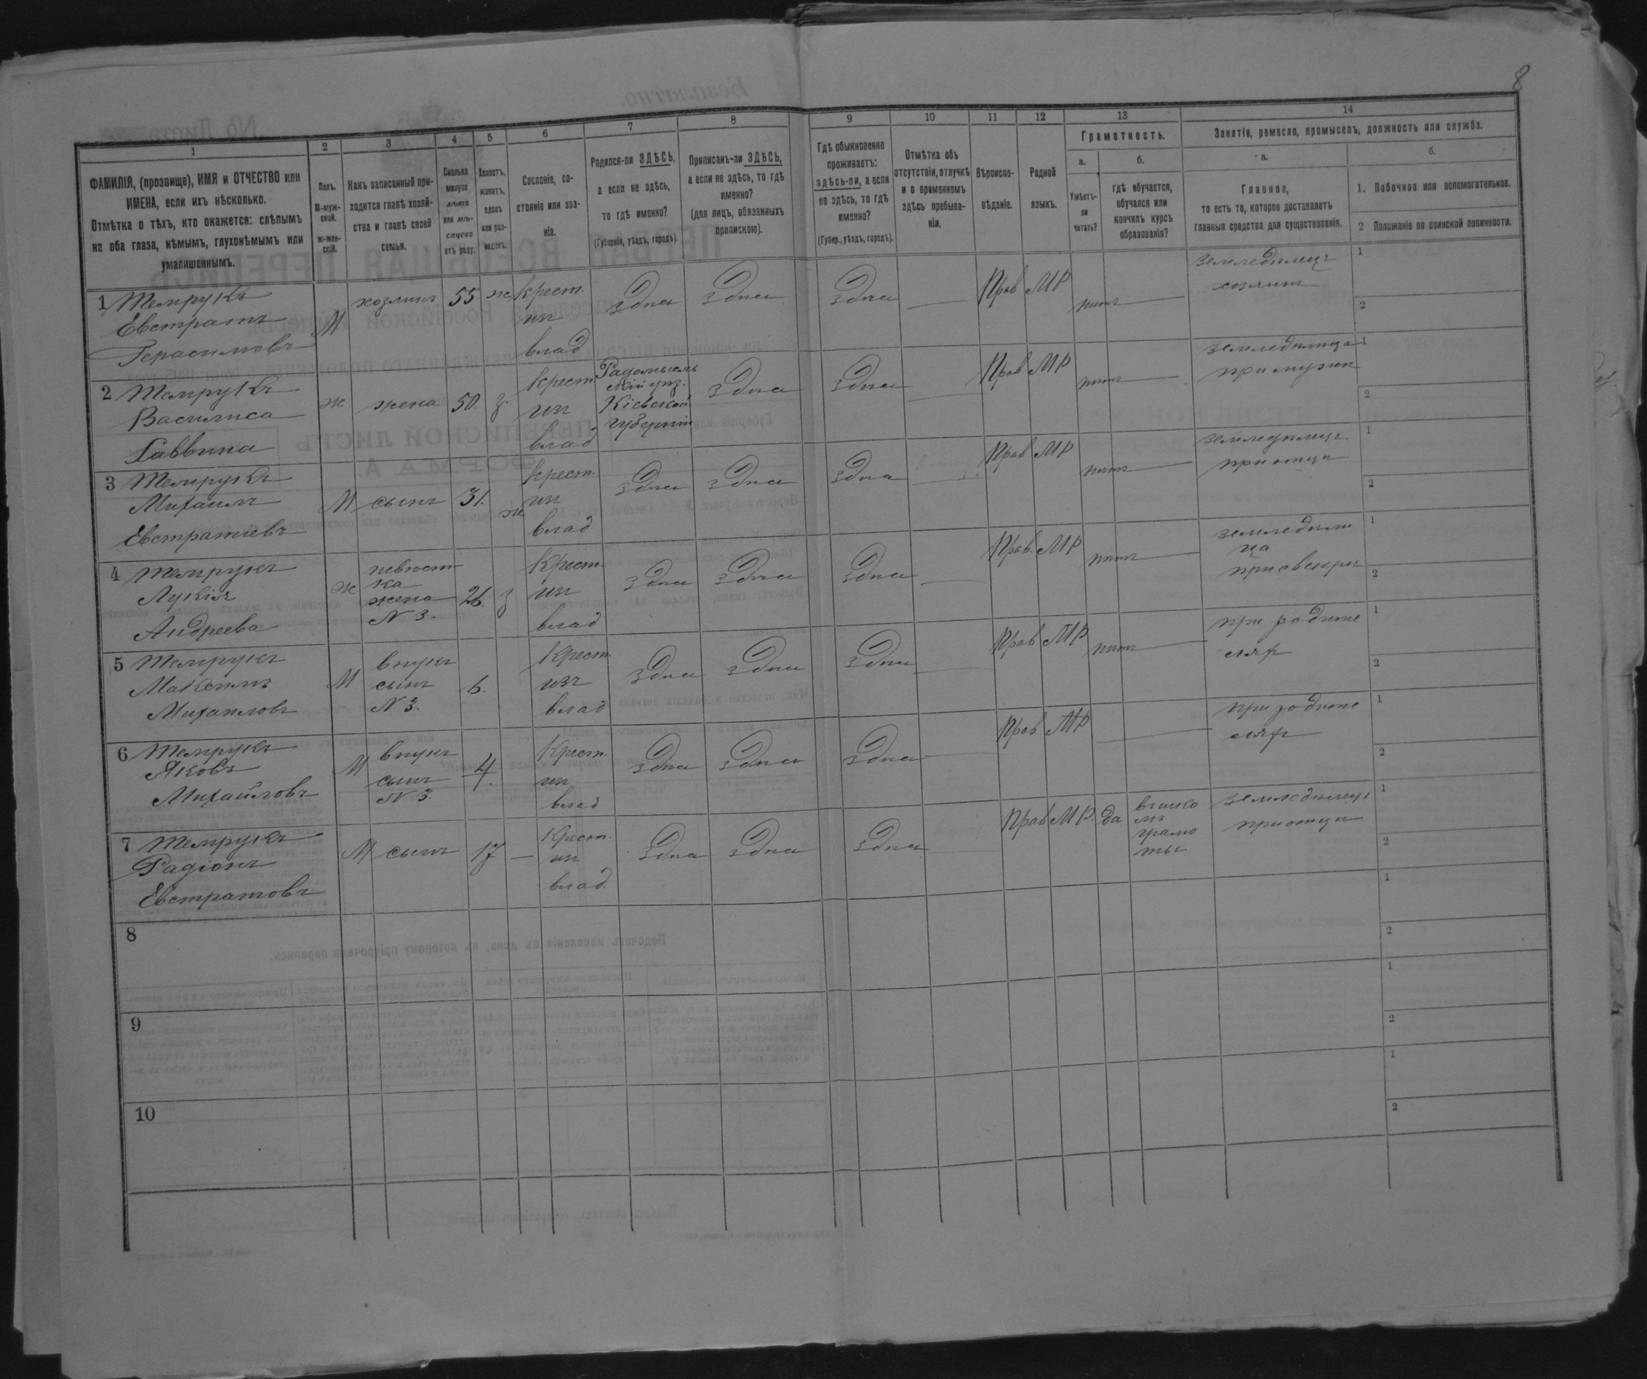 8
1 2 3 4 5 6 7 8 9 10 11 12 13 14
ФАМИЛІЯ, (прозвище), ИМЯ и ОТЧЕСТВО или
ИМЕНА, если ихъ нѣсколько.
Отмѣтка о тѣхъ, кто окажется: слѣпымъ
на оба глаза, нѣмымъ, глухонѣмымъ или
умалишеннымъ.
Полъ.
М-муж-
ской.
Ж-жен-
скій.
Какъ записанный при-
ходится главѣ хозяй-
ства и главѣ своей
семьи.
Сколько
минуло
лѣтъ
или мѣ-
сяцевъ
отъ роду.
Холостъ,
женатъ,
вдовъ
или раз-
веденъ.
Сословіе, со-
стояніе или зва-
ніе.
Родился-ли ЗДѢСЬ,
а если не здѣсь,
то гдѣ именно?
(Губернія, уѣздъ, городъ).
Приписанъ-ли ЗДѢСЬ,
а если не здѣсь, то гдѣ
именно?
(для лицъ, обязанныхъ
припискою).
Гдѣ обыкновенно
проживаетъ:
здѣсь-ли, а если
не здѣсь, то гдѣ
именно?
(Губер., уѣздъ, городъ).
Отмѣтка объ
отсутствіи, отлучкѣ
и о временномъ
здѣсь пребыва-
ніи.
Вѣроиспо-
вѣданіе.
Родной
языкъ.
Грамотность.
а.
Умѣетъ-
ли
читать?
б.
гдѣ обучается,
обучался или
кончилъ курсъ
образованія?
Занятіе, ремесло, промыселъ, должность или служба.
а.
Главное,
то есть то, которое доставляетъ
главныя средства для существованія.
б.
1. Побочное или вспомогательное.
2 Положеніе по воинской повинности.
1 Темрукъ
Евстратъ
Герасимовъ
М хозяинъ 55 ж
Крест.
из
влад
здѣсь здѣсь здѣсь Прав МР нѣтъ
земледѣлецъ
хозяинъ
1
2
2 Темрукъ
Василиса
Саввина
ж жена 50. з
крест
из
влад
Радомысль
скій уѣз.
Кіевской
губерніи
здѣсь здѣсь Прав МР нѣтъ
земледѣлица
при мужѣ
1
2
3 Темрукъ
Михаилъ
Евстратовъ
М сынъ 31. ж
крест.
из
влад
здѣсь здѣсь здѣсь Прав МР нѣтъ
земледѣлецъ
при отцѣ
1
2
4 Темрукъ
Лукія
Андреева
ж
невѣст
ка
жена
N 3.
26. з
Крест
из
влад
здѣсь здѣсь здѣсь Прав. МР нѣтъ
земледѣли
ца
при свекрѣ
1
2
5 Темрукъ
Максимъ
Михаиловъ
М
внукъ
сынъ
N 3.
6.
Крест
изъ
влад
здѣсь здѣсь здѣсь Прав МР нѣтъ
при родите
ляхъ
1
2
6 Темрукъ
Яковъ
Михайловъ
М
внукъ
сынъ
N 3.
4.
Крест.
из
влад
здѣсь здѣсь здѣсь Прав МР
при родите
ляхъ
1
2
7 Темрукъ
Радіонъ
Евстратовъ
М сынъ 17 —
Крест.
из
влад.
здѣсь здѣсь здѣсь Прав МР да
въ шко
лѣ
грамо
ты
земледѣлецъ
при отцѣ
1
2
8
1
2
9
1
2
10
1
2